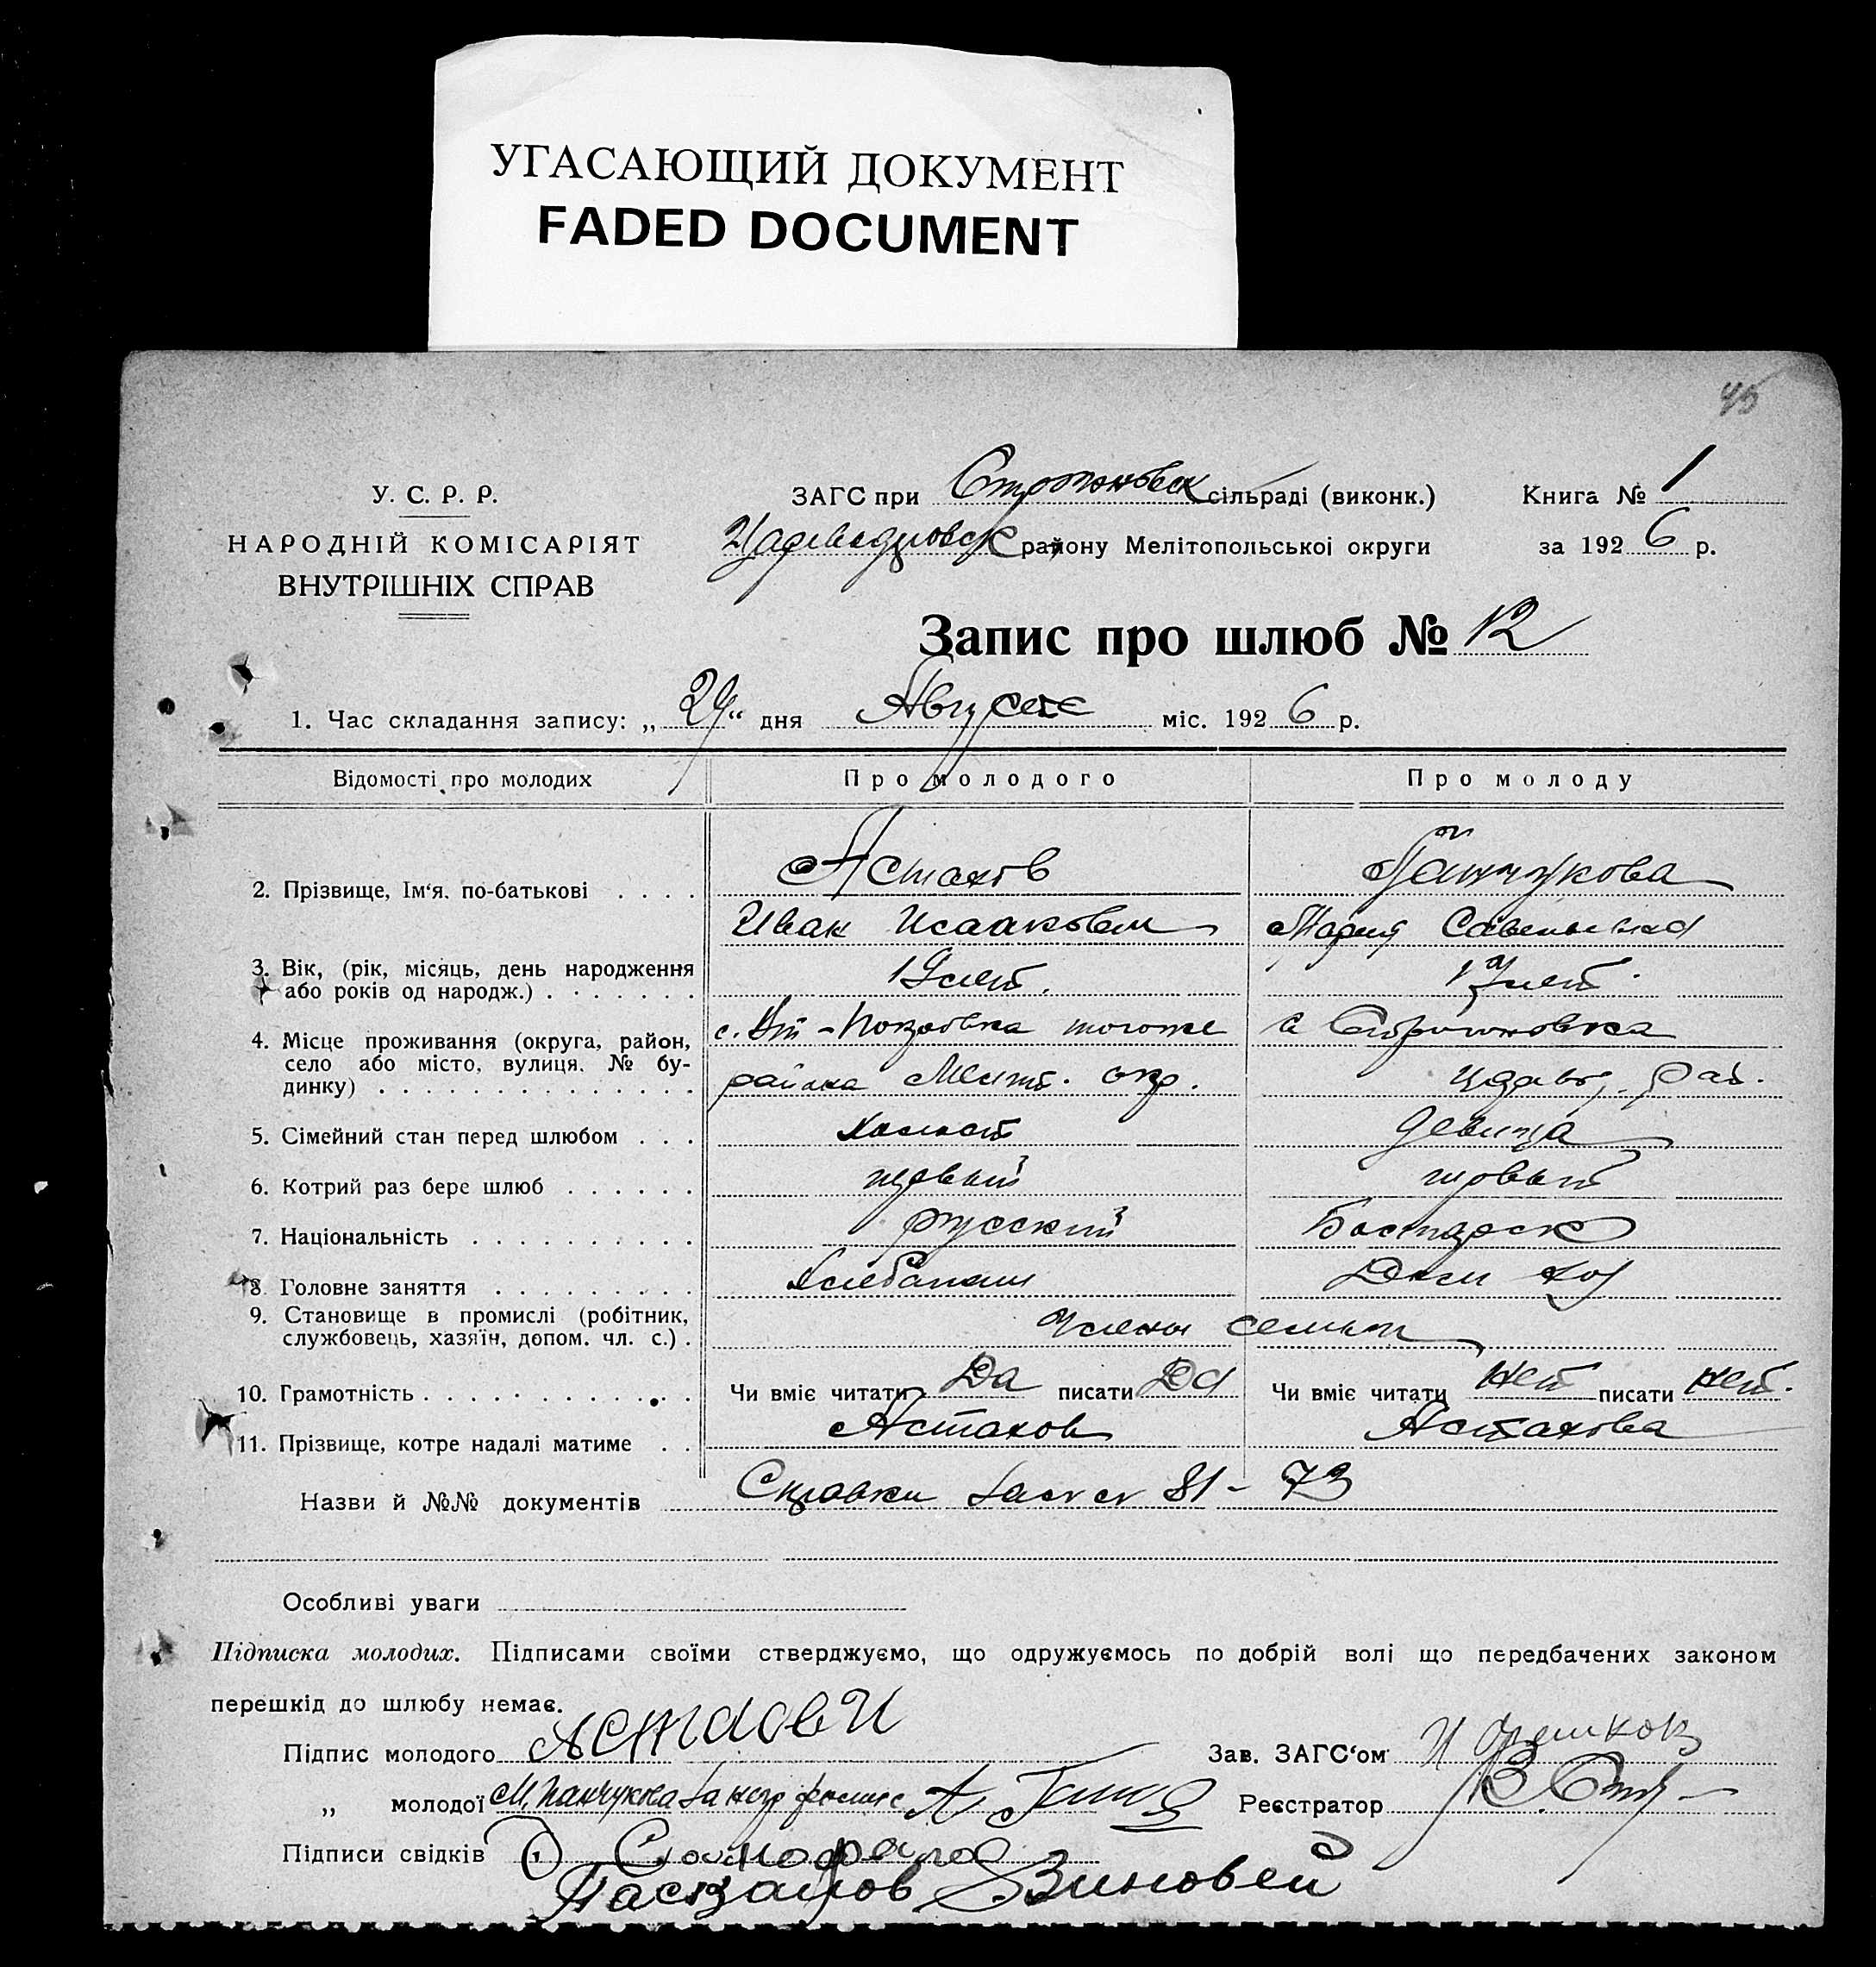 УГАСАЮЩИЙ ДОКУМЕНТ
FADED DOCUMENT
45
У. С. Р. Р.
НАРОДНІЙ КОМІСАРІЯТ
ВНУТРІШНІХ СПРАВ
ЗАГС при сільраді (виконк.)
району Мелітопольської округи
Книга № 1
за 1926 р.
Запис про шлюб № 12
1. Час складання запису: „29“ дня Августа міс. 1926 р.
Відомості про молодих Про молодого Про молоду
2. Прізвище, Ім‘я, по-батькові . . . . Астахов
Иван Исаакович Мария
3. Вік, (рік, місяць, день народження
або років од народж.) . . . . . . . 19 лет. 17 лет.
4. Місце проживання (округа, район,
село або місто, вулиця, № бу-
динку) . . . . . . . . . . . . . . с. Покровка тогоже
района Мелит. окр.
5. Сімейний стан перед шлюбом . . . Холост Девица
6. Котрий раз бере шлюб . . . . . . первый первый
7. Національність . . . . . . . . . . русский
8. Головне заняття . . . . . . . . . Хлебопаш Дом хоз
9. Становище в промислі (робітник,
службовець, хазяїн, допом. чл. с.) . Члены семьи
10. Грамотність . . . . . . . . . . . . . Чи вміє читати Да писати Да Чи вміє читати Нет писати нет.
11. Прізвище, котре надалі матиме . . Астахов Астахова
Назви й №№ документів Справки 81 - 73
Особливі уваги
Підписка молодих. Підписами своїми стверджуємо, що одружуємось по добрій волі що передбачених законом
перешкід до шлюбу немає.
Підпис молодого Зав. ЗАГС‘ом
„ молодої М. Реєстратор
Підписи свідків 1
Зиновей